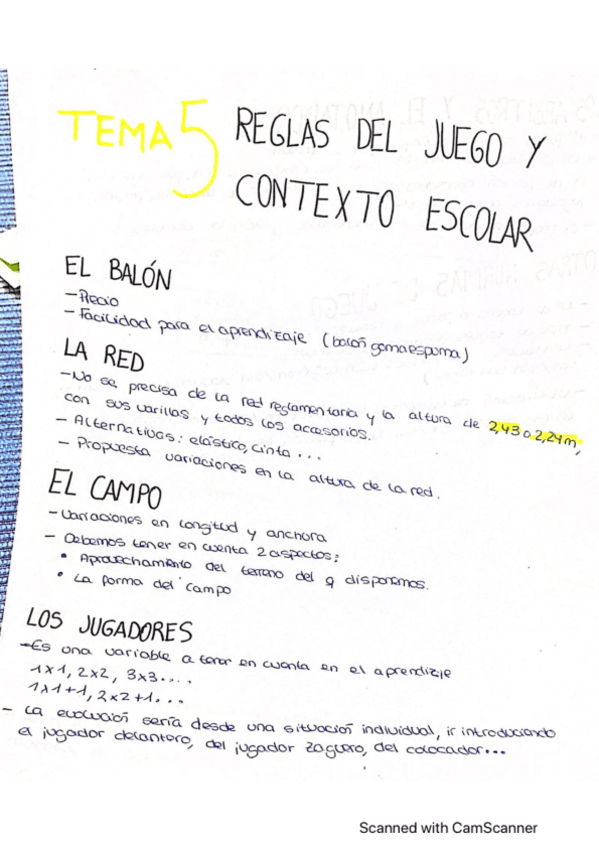 TEMA 5 REGLAS DEL JUEGO Y
CONTEXTO ESCOLAR
EL BALÓN
- Precio
- Facilidad para el aprendizaje (balón gomaespuma)
LA RED
- No se precisa de la red reglamentaria y la altura de 2,43 o 2,24m,
con sus varillas y todos los accesorios.
- Alternativas: elástico, cinta ...
- Propuesta variaciones en la altura de la red.
EL CAMPO
- Variaciones en longitud y anchura
- Debemos tener en cuenta 2 aspectos:
• Aprovechamiento del terreno del q disponemos.
• La forma del campo
LOS JUGADORES
- Es una variable a tener en cuenta en el aprendizje
1x1, 2x2, 3x3....
1x1+1, 2x2+1...
- La evolución sería desde una situación individual, ir introduciendo
el jugador delantero, del jugador zaguero, del colocador...
Scanned with CamScanner